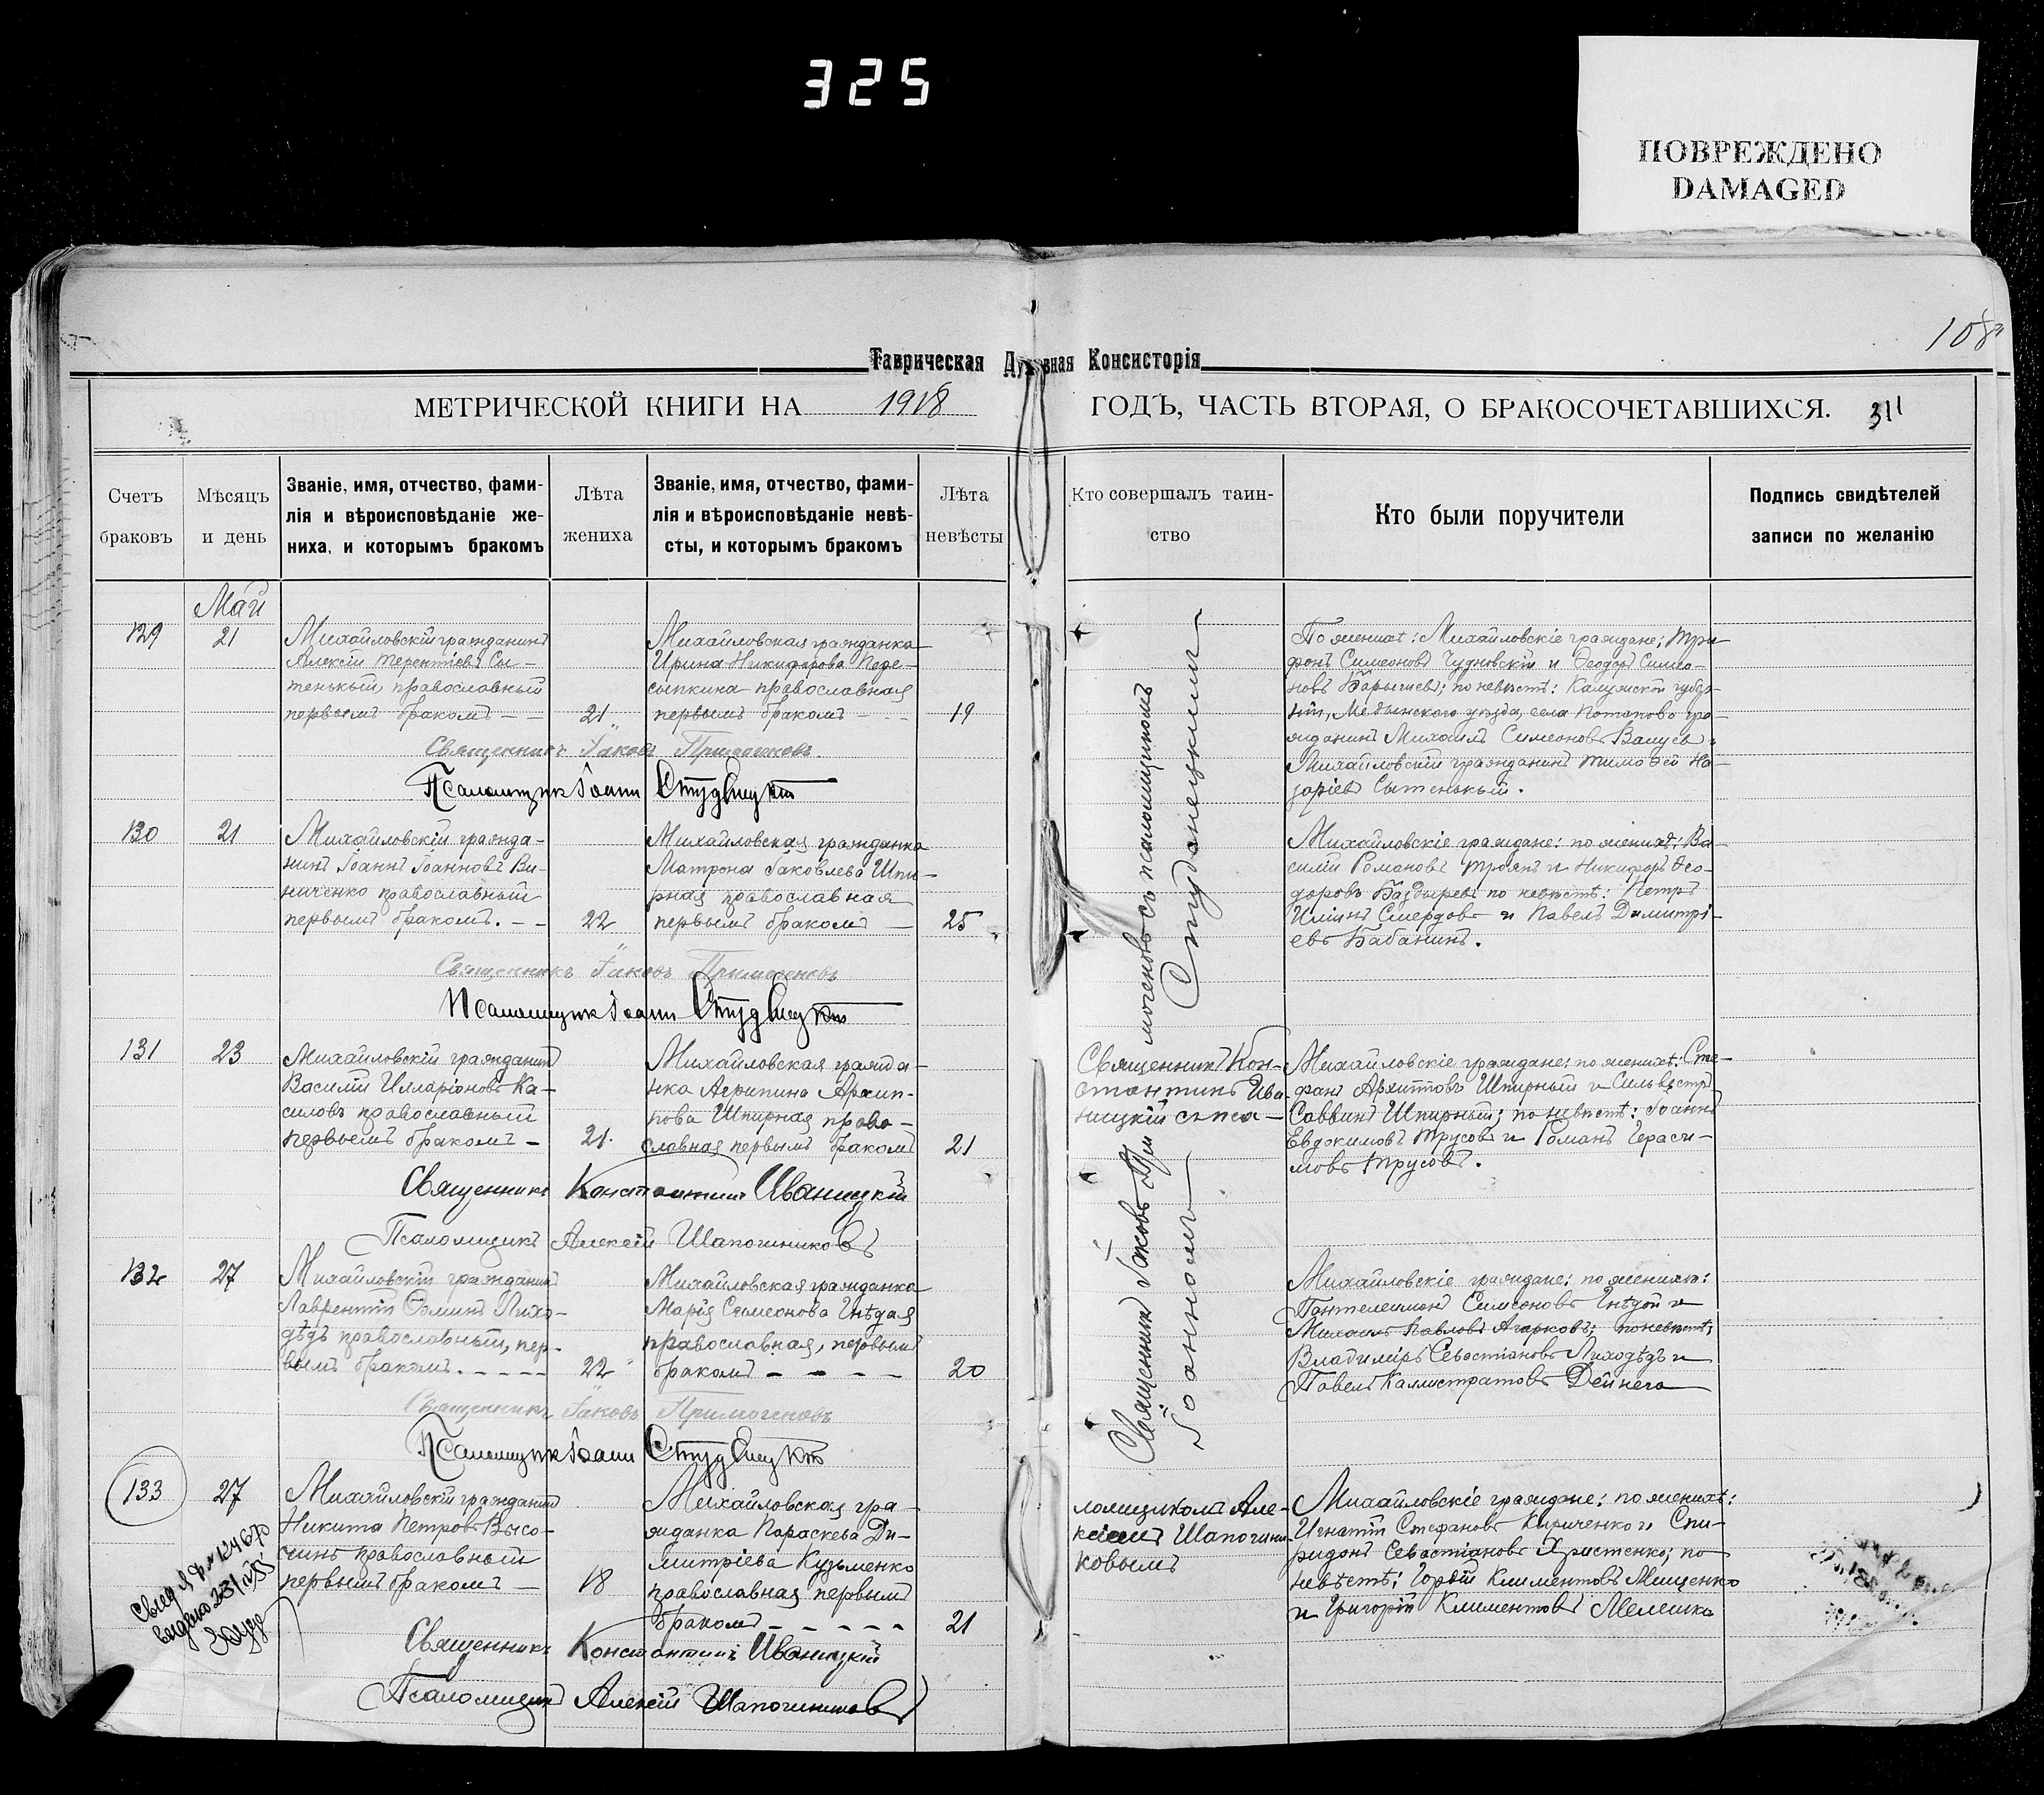 325
ПОВРЕЖДЕНО
DAMAGED
108
Таврическая Духовная Консисторія
МЕТРИЧЕСКОЙ КНИГИ НА 1918 ГОДЪ, ЧАСТЬ ВТОРАЯ, О БРАКОСОЧЕТАВШИХСЯ. 311
Счетъ
браковъ
Мѣсяцъ
и день
Званіе, имя, отчество, фами-
лія и вѣроисповѣданіе же-
ниха, и которымъ бракомъ
Лѣта
жениха
Званіе, имя, отчество, фами-
лія и вѣроисповѣданіе невѣ-
сты, и которымъ бракомъ
Лѣта
невѣсты
Кто совершалъ таин-
ство
Кто были поручители
Подпись свидѣтелей
записи по желанію
Май
129
21
Михайловскій гражданинъ
Алексій Терентіевъ Сы-
тенькый, православный
первымъ бракомъ — —
21
Михайловская гражданка
Ирина Никифорова Пере-
сыпкина православная
первымъ бракомъ — —
19
По женихѣ: Михайловскіе граждане: Три-
фонъ Симеоновъ Чудновскій и Ѳеодоръ Симео-
новъ Барышевъ; по невѣстѣ: Калужской губер-
ніи, Медынскаго уѣзда, села Потапово гра-
жданинъ Михаилъ Симеоновъ Валуев и
Михайловскій гражданинъ Тимофей На-
заріевъ Сытенькый.
Священникъ Іаковъ Примогеновъ
Псаломщикъ Іоаннъ Студенецкій
130
21
Михайловскій гражда-
нинъ Іоаннъ Іоанновъ Ви-
ниченко православный
первымъ бракомъ. — —
22
Михайловская гражданка
Матрона Іаковлева Шпи-
рная православная
первымъ бракомъ —
25
Михайловскіе граждане: по женихѣ: Ва-
силій Романовъ Троянъ и Никифоръ Ѳео-
доровъ Баздыревъ по невѣстѣ: Петръ
Иліинъ Смердовъ и Павелъ Димитрі-
евъ Бабанинъ.
Священникъ Іаковъ Примогеновъ
Псаломщикъ Іоаннъ Студенецкій
131
23
Михайловскій гражданинъ
Василій Иларіоновъ Ка-
силовъ православный
первымъ бракомъ —
21
Михайловская гражда-
нка Агрипина Архип-
пова Шпирная право-
славная первымъ бракомъ
21
Священникъ Кон-
стантинъ Ива-
ницкій съ пса-
Михайловскіе граждане: по женихѣ: Сте-
фанъ Архипповъ Шпирный и Сильвестръ
Саввинъ Шпирный; по невѣстѣ: Іоаннъ
Евдокимовъ Трусовъ и Романъ Гераси-
мовъ Трусовъ.
Священникъ Константинъ Иваницкій
Псаломщикъ Алексій Шапочниковъ
132
27
Михайловскій гражданинъ
Лаврентій Ѳоминъ Лихо-
дѣдъ православный, пер-
вымъ бракомъ. — — — —
22
Михайловская гражданка
Марія Симеонова Гнѣдая
православная, первымъ
бракомъ — — — —
20
Михайловскіе граждане: по женихѣ:
Пантелеимонъ Симеоновъ Гнѣдой и
Михаилъ Павловъ Агарковъ; по невѣстѣ:
Владиміръ Севастіановъ Лиходѣдъ и
Павелъ Каллистратовъ Дейнега
Священникъ Іаковъ Примогеновъ
Псаломщикъ Іоаннъ Студенецкій
Священникъ Іаковъ Примогеновъ съ псаломщикомъ
Іоанномъ Студенецкимъ
133
27
Михайловскій гражданинъ
Никита Петровъ Высо-
чинъ православный
первымъ бракомъ —
18
Михайловская гра-
жданка Параскева Ди-
митріева Кузьменко
православная первымъ
бракомъ — — — — —
21
ломщикомъ Але-
ксіемъ Шапочни-
ковымъ
Михайловскіе граждане: по женихѣ:
Игнатій Стефановъ Кириченко и Спи-
ридонъ Севастіановъ Христенко; по
невѣстѣ: Гордій Климентовъ Мищенко
и Григорій Климентовъ Мелешко
Священникъ Константинъ Иваницкій
Псаломщикъ Алексій Шапочниковъ